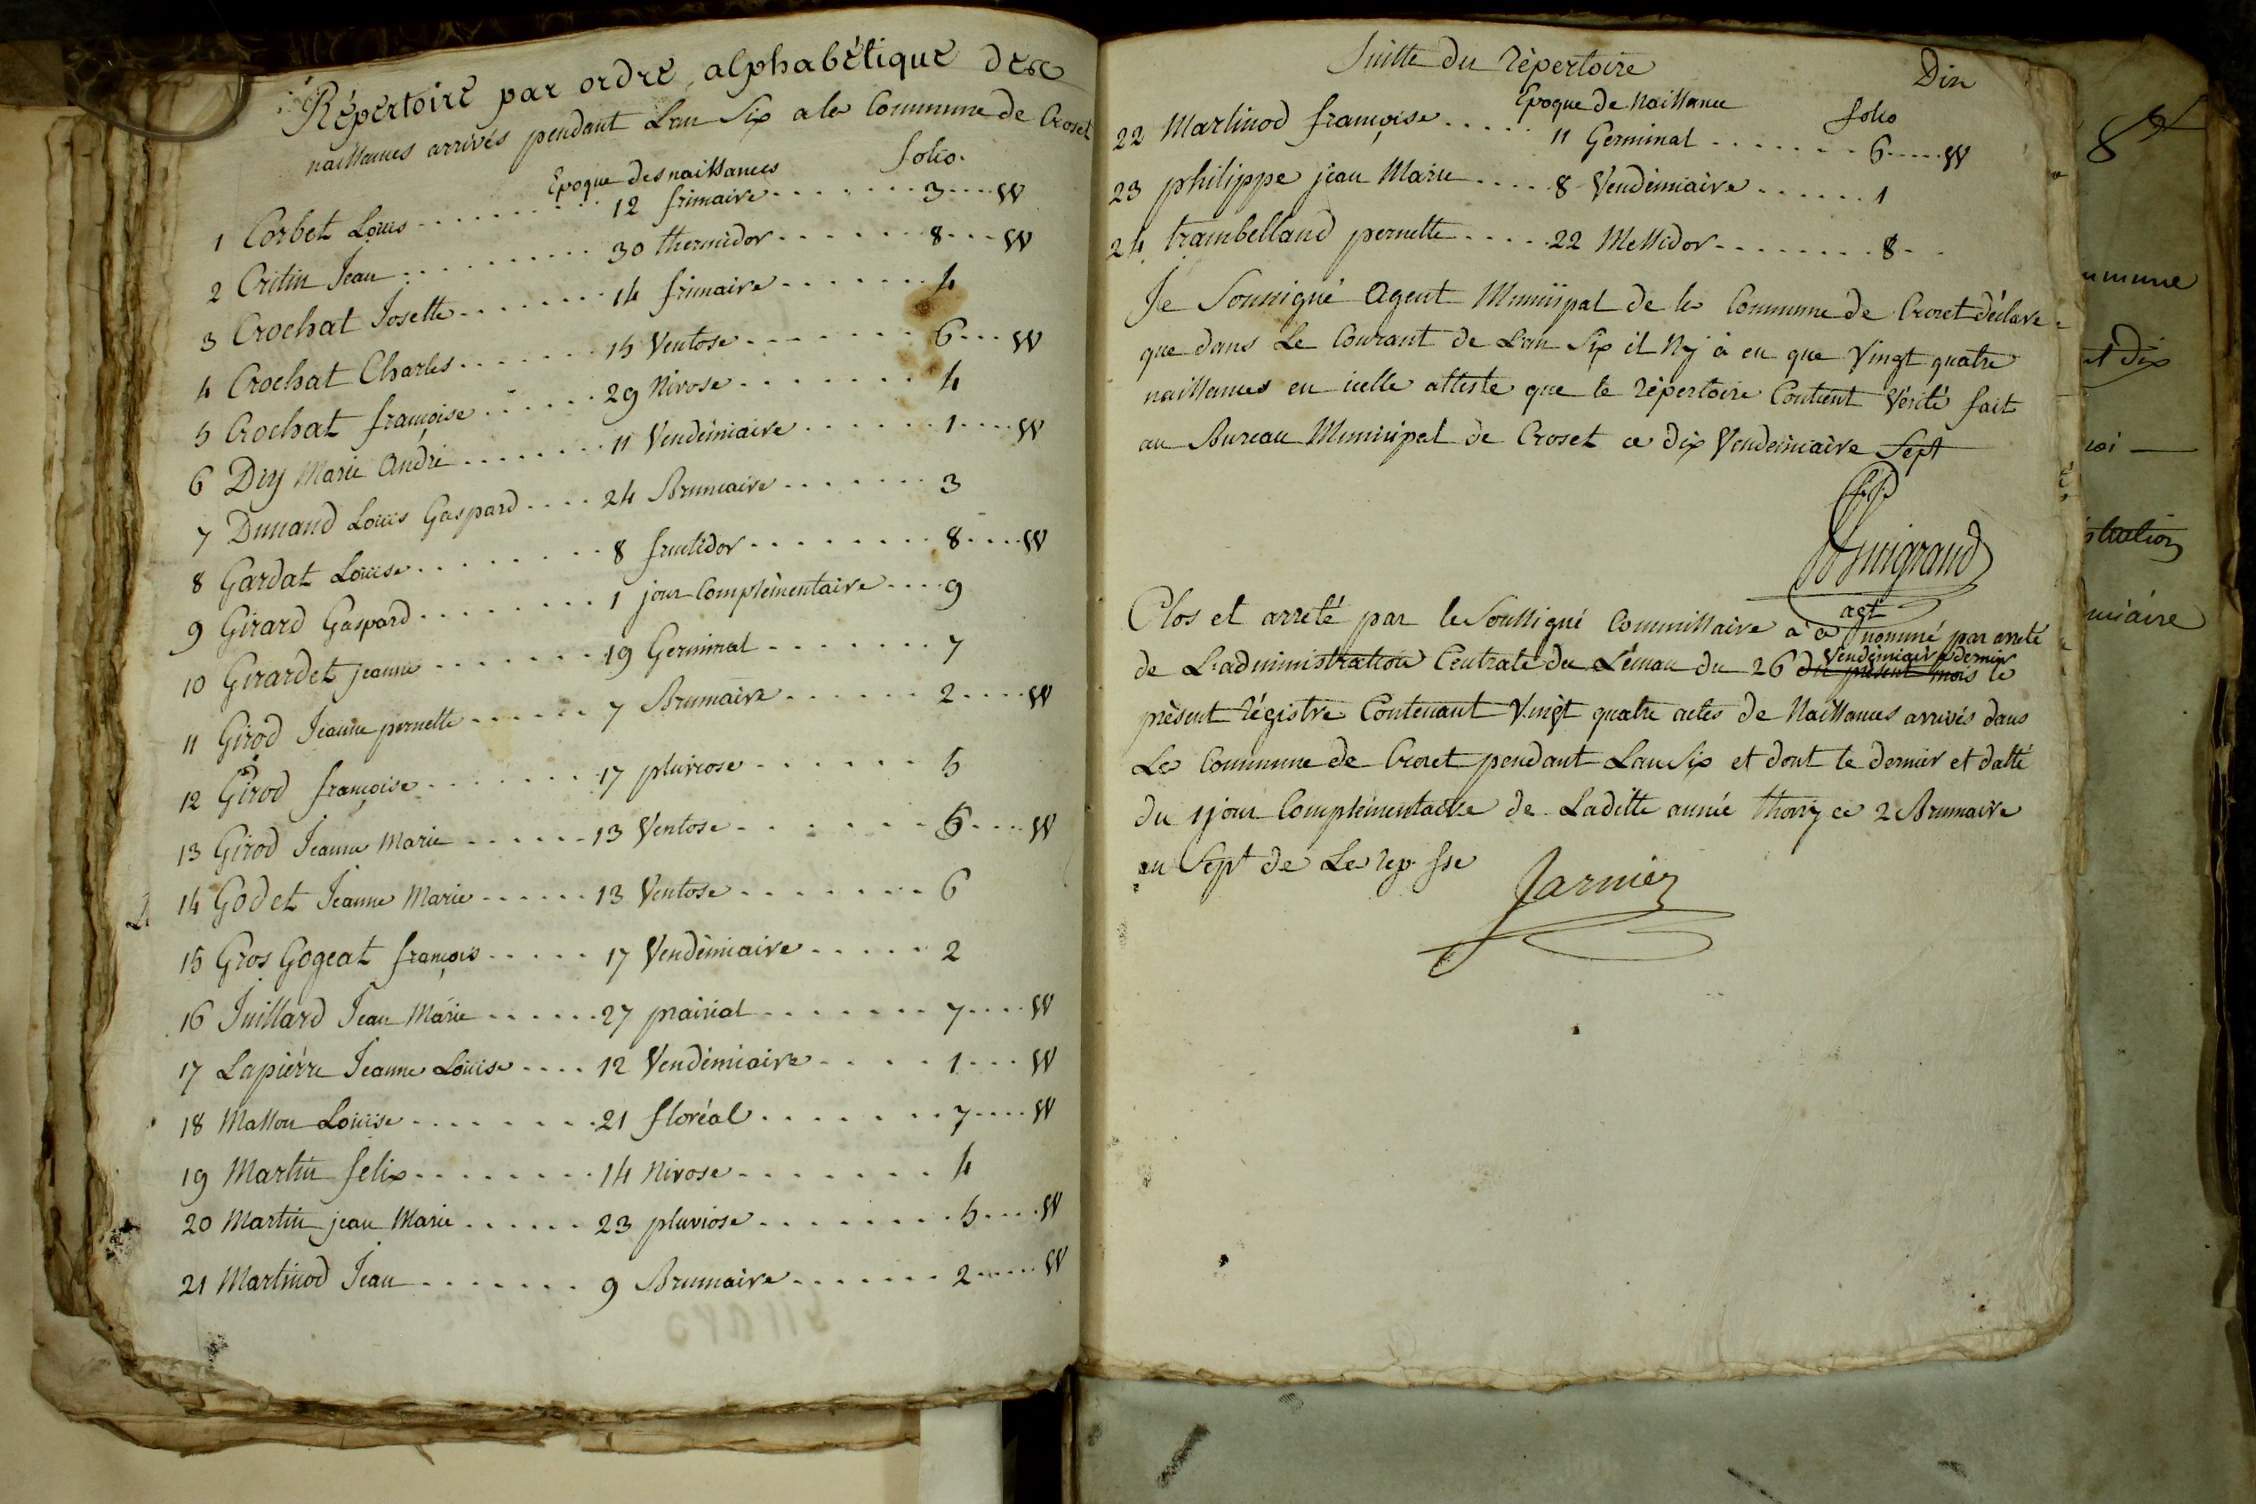 Répertoire par ordre alphabétique des
naissances arrivés pendant Lan Six a la Commune de Crozet
Epoque des naissances folio.
1 Corbet Louis 12 frimaire 3 W
2 Critin Jean 30 thermidor 8 W
3 Crochat Josette 14 frimaire 4
4 Crochat Charles 15 Ventose 6 W
5 Crochat françoise 29 Nivose 4
6 Dry Marie André 11 Vendémiaire 1 W
7 Dunand Louis Gaspard 24 Brumaire 3
8 Gardat Louise 8 fructidor 8 W
9 Girard Gaspard 1 jour Complémentaire 9
10 Girardet jeanne 19 Germinal 7
11 Girod Jeanne pernette 7 Brumaire 2 W
12 Girod françoise 17 pluviose 5
13 Girod Jeanne Marie 13 Ventose 6 W
14 Godet Jeanne Marie 13 Ventose 6
15 Gros Gogeat françois 17 Vendémiaire 2
16 Juillard Jean Marie 27 prairial 7 W
17 Lapiérre Jeanne Louise 12 Vendémiaire 1 W
18 Masson Louise 21 floréal 7 W
19 Martin felix 14 Nivose 4
20 Martin jean Marie 23 pluviose 5 W
21 Martinod Jean 9 Brumaire 2 W
Suitte du répertoire Dix
Epoque de Naissance folio
22 Martinod françoise 11 Germinal 6 W
23 philippe jean Marie 8 Vendémiaire 1
24 trambelland pernette 22 Messidor 8
Je Soussigné Agent Municipal de la Commune de Crozet déclare
que dans Le Courant de Lan Six il Ny à eu que Vingt quatre
naissances en icelle atteste que le répertoire Contient Vérité fait
au Bureau Municipal de Croset ce dix Vendémiaire Sept
agt
Clos et arreté par le Soussigné Commissaire à ce nommé par arreté
Vendémiaire dernier
de L'administration Centrale du Léman du 26 du présent mois le
présent régistre Contenant Vingt quatre actes de Naissances arrivés dans
La Commune de Crozet pendant Lan Six et dont le dernier et datté
du 1 jour Complémentaire de Laditte année thoiry ce 2 Brumaire
an Sept de La rep fse
Jarnier
8
mmune
et dix
stration
miaire